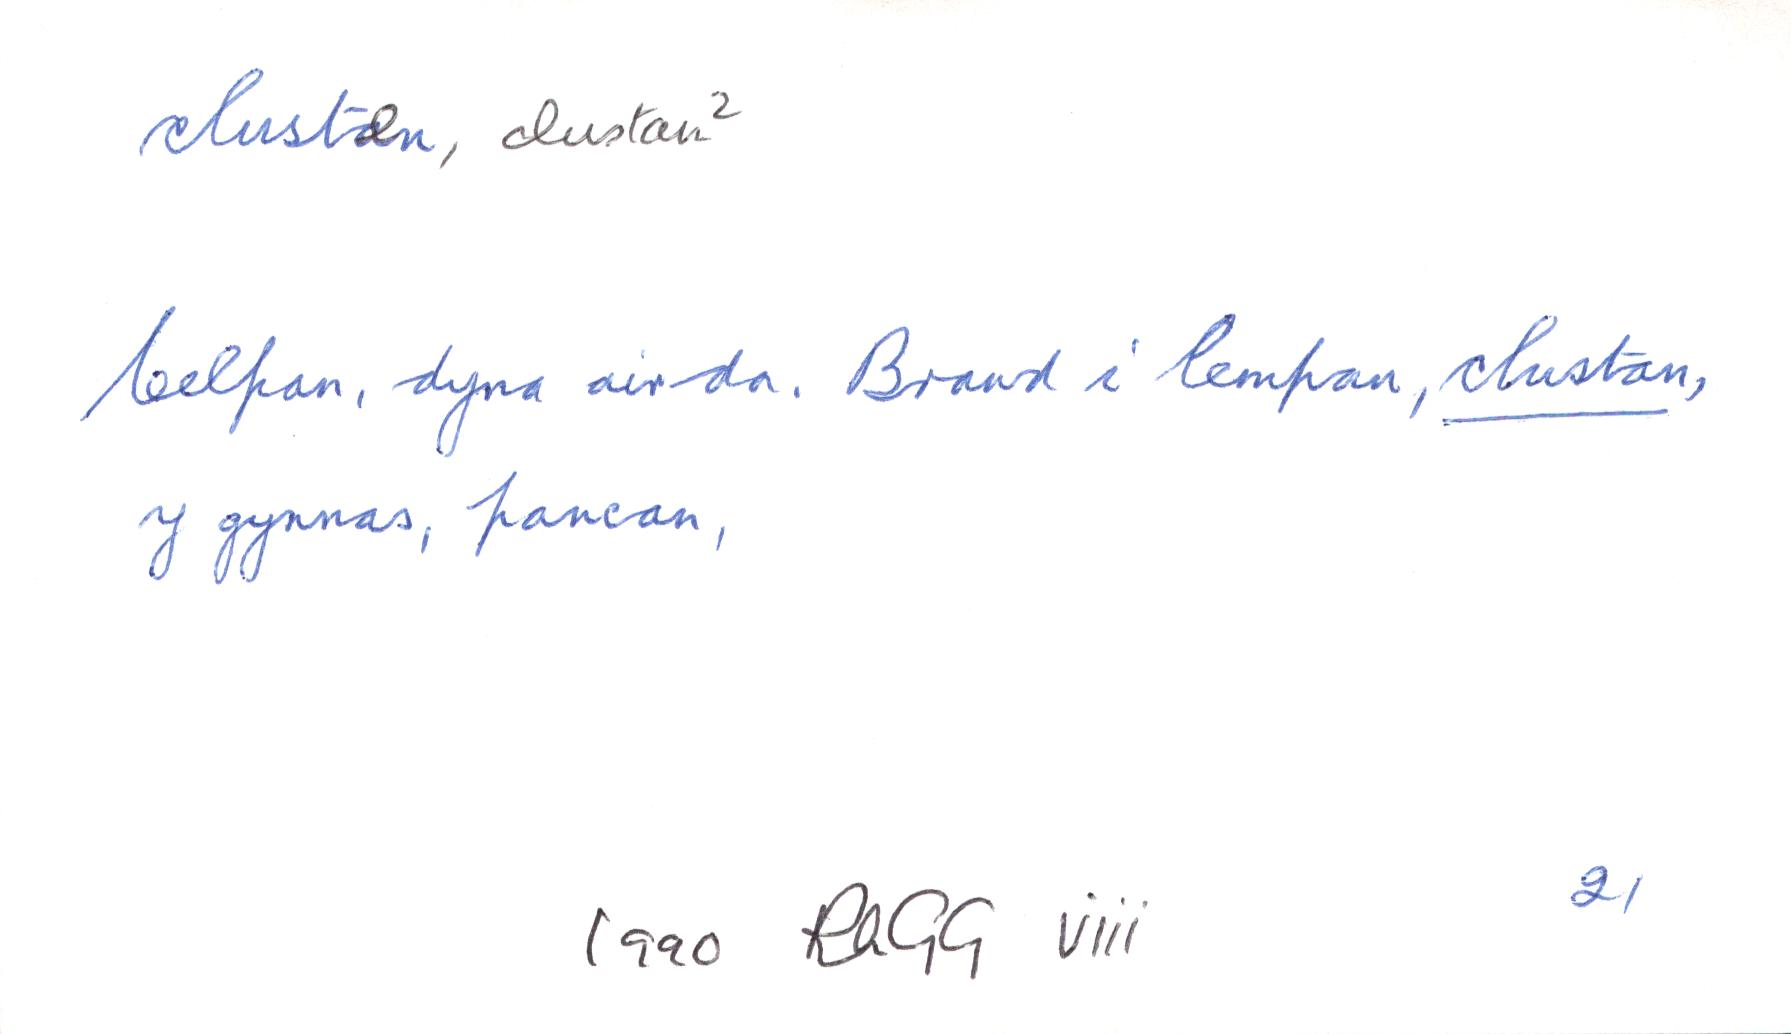 clusten, clustan²
Celpan, dyna air da. Brawd i lempan, clustan,
y gynnas, pancan,
21
1990 RhGG viii